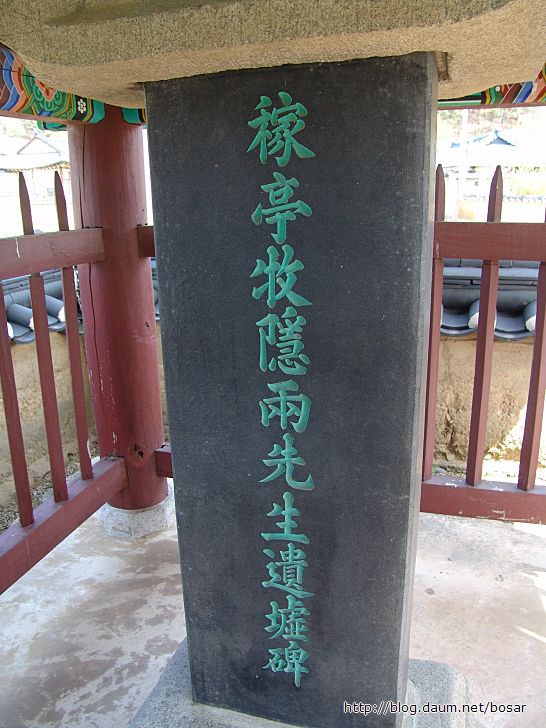 稼亭牧隱兩先生遺墟碑
http://blog.daum.net/bosar